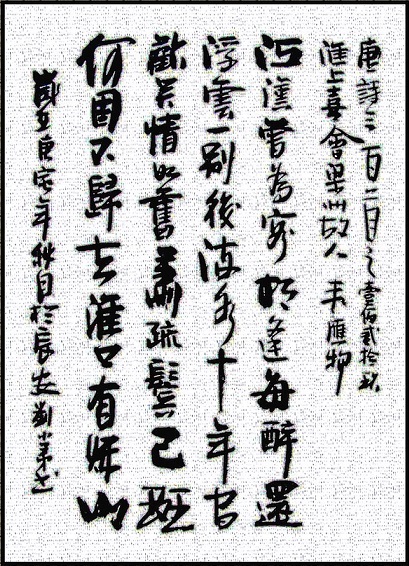 唐詩三百首之壹佰貳拾玖
淮上喜會梁州故人 韋應物
江漢曾為客相逢每醉還
浮雲一別後流水十年間
歡笑情如舊蕭疏鬢已斑
何因不歸去淮上有秋山
歲在庚寅年秋月於辰